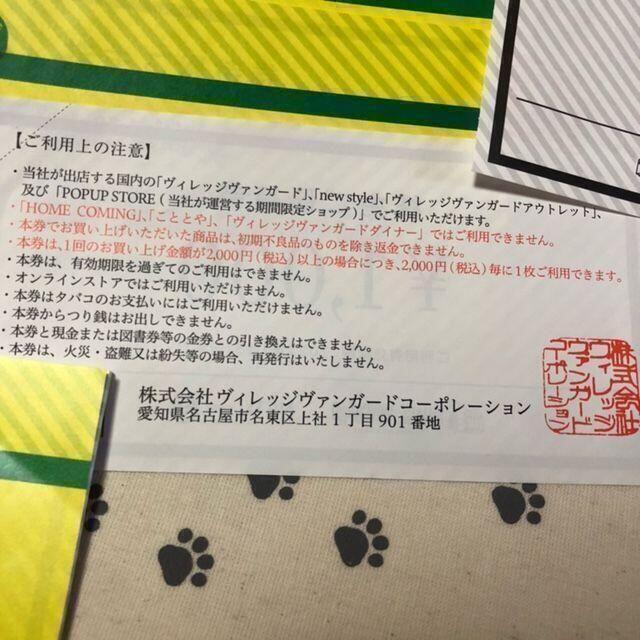 【ご利用上の注意】
・当社が出店する国内の「ヴィレッジヴァンガード」、「new style」、「ヴィレッジヴァンガードアウトレット」、
及び「POPUP STORE (当社が運営する期間限定ショップ)」でご利用いただけます。
・「HOME COMING」、「こととや」、「ヴィレッジヴァンガードダイナー」ではご利用できません。
・本券でお買い上げいただいた商品は、初期不良品のものを除き返金できません。
・本券は、1回のお買い上げ金額が2,000円(税込)以上の場合につき、2,000円(税込)毎に1枚ご利用できます。
・本券は、有効期限を過ぎてのご利用はできません。
・オンラインストアではご利用いただけません。
・本券はタバコのお支払いにはご利用いただけません。
・本券からつり銭はお出しできません。
・本券と現金または図書券等の金券との引き換えはできません。
・本券は、火災・盗難又は紛失等の場合、再発行はいたしません。
株式会社ヴィレッジヴァンガードコーポレーション
愛知県名古屋市名東区上社1丁目901番地
株式会社
ヴィレッジ
ヴァンガード
コーポレーション